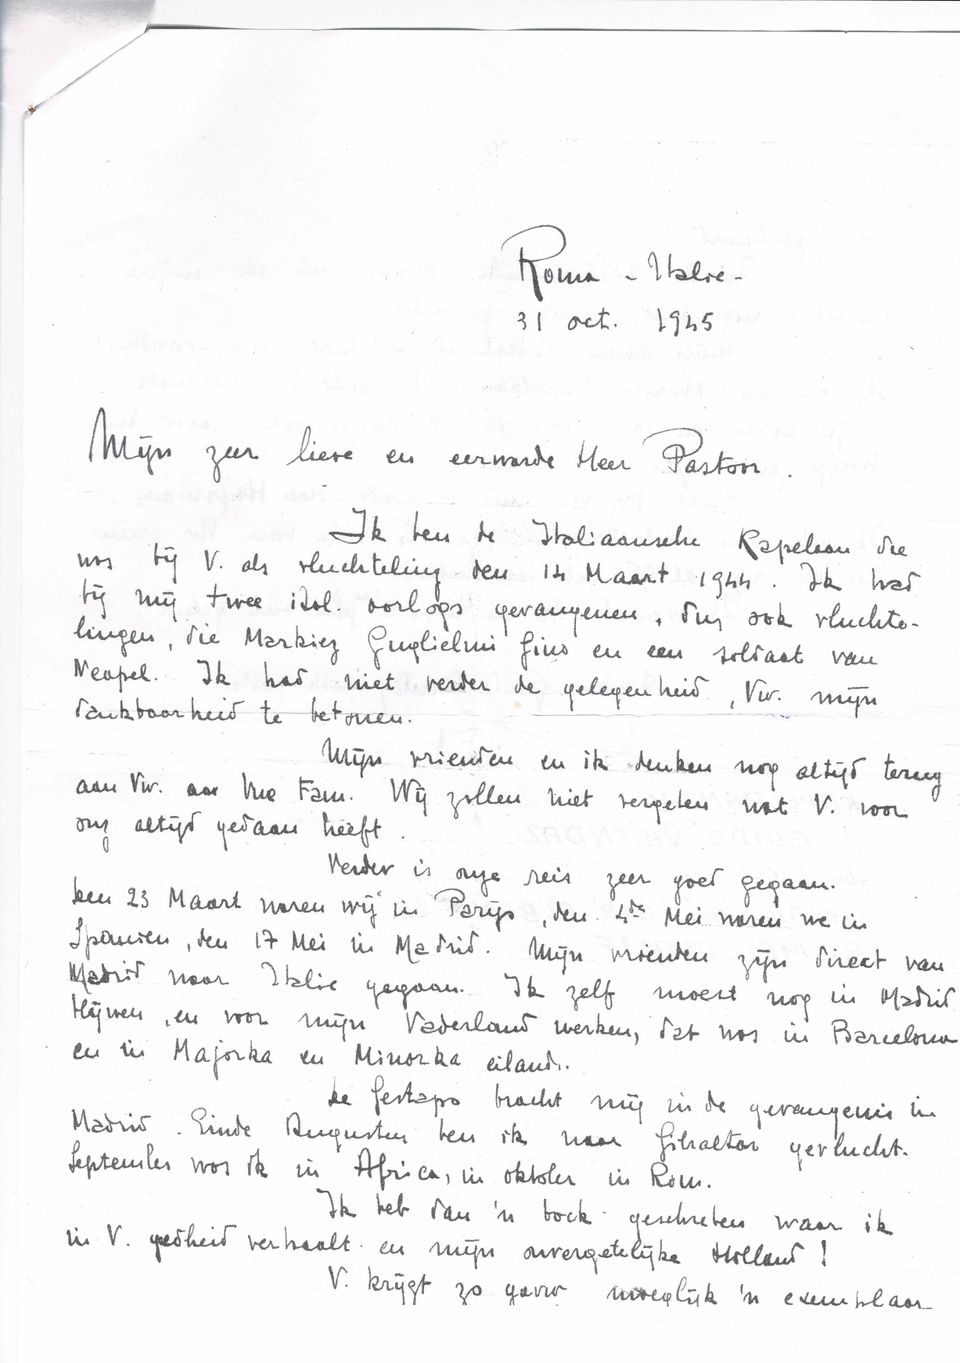 Roma - Italië -
31 oct. 1945
Mijn zeer lieve en eerwaarde Heer Pastoor.
Ik ben de Italiaansche Kapelaan die
was bij V. als vluchteling den 14 Maart 1944. Ik had
bij mij twee ital. oorlogs gevangenen, dus ook vluchte-
lingen, die Markiez Guglielmi Gino en een soldaat van
Neapel. Ik had niet verder de gelegenheid, Vw. mijn
dankbaarheid te betonen.
Mijn vrienden en ik denken nog altijd terug
aan Vw. aan Uwe Fam. Wij zullen niet vergeten wat V. voor
ons altijd gedaan heeft.
Verder is onze reis zeer goed gegaan.
Den 23 Maart waren wij in Parijs, den 4de Mei waren we in
Spanien, den 17 Mei in Madrid. Mijn vrienden zijn direct van
Madrid naar Italie gegaan. Ik zelf moest nog in Madrid
blijven, en voor mijn Vaderland werken, dat was in Barcelona
en in Majorka en Minorka eiland.
De Gestapo bracht mij in de gevangenis in
Madrid. Einde Augustus ben ik naar Gibraltar gevlucht.
September was ik in Africa, in oktober in Rom.
Ik heb dan 'n boek geschreben waar ik
in V. verhaalt en mijn onvergetelijke Holland!
V. krijgt zo gauw moeglijk 'n exemplaar